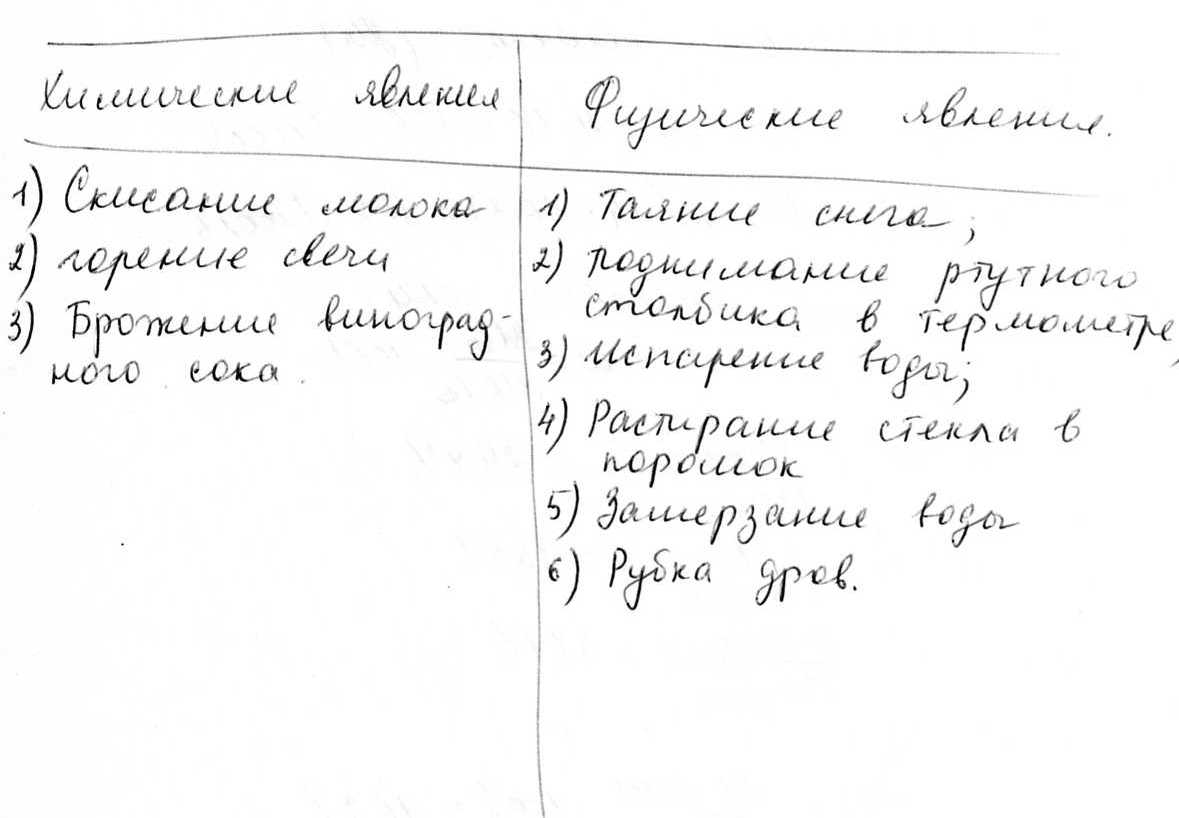 Химические явления
1) Скисание молока
2) горение свечи
3) Брожение виноград-
ного сока.
Физические явления.
1) Таяние снега;
2) поднимание ртутного
столбика в термометре,
3) Испарение воды;
4) Растирание стекла в
поромок
5) Замерзание воды
6) Рубка дров.